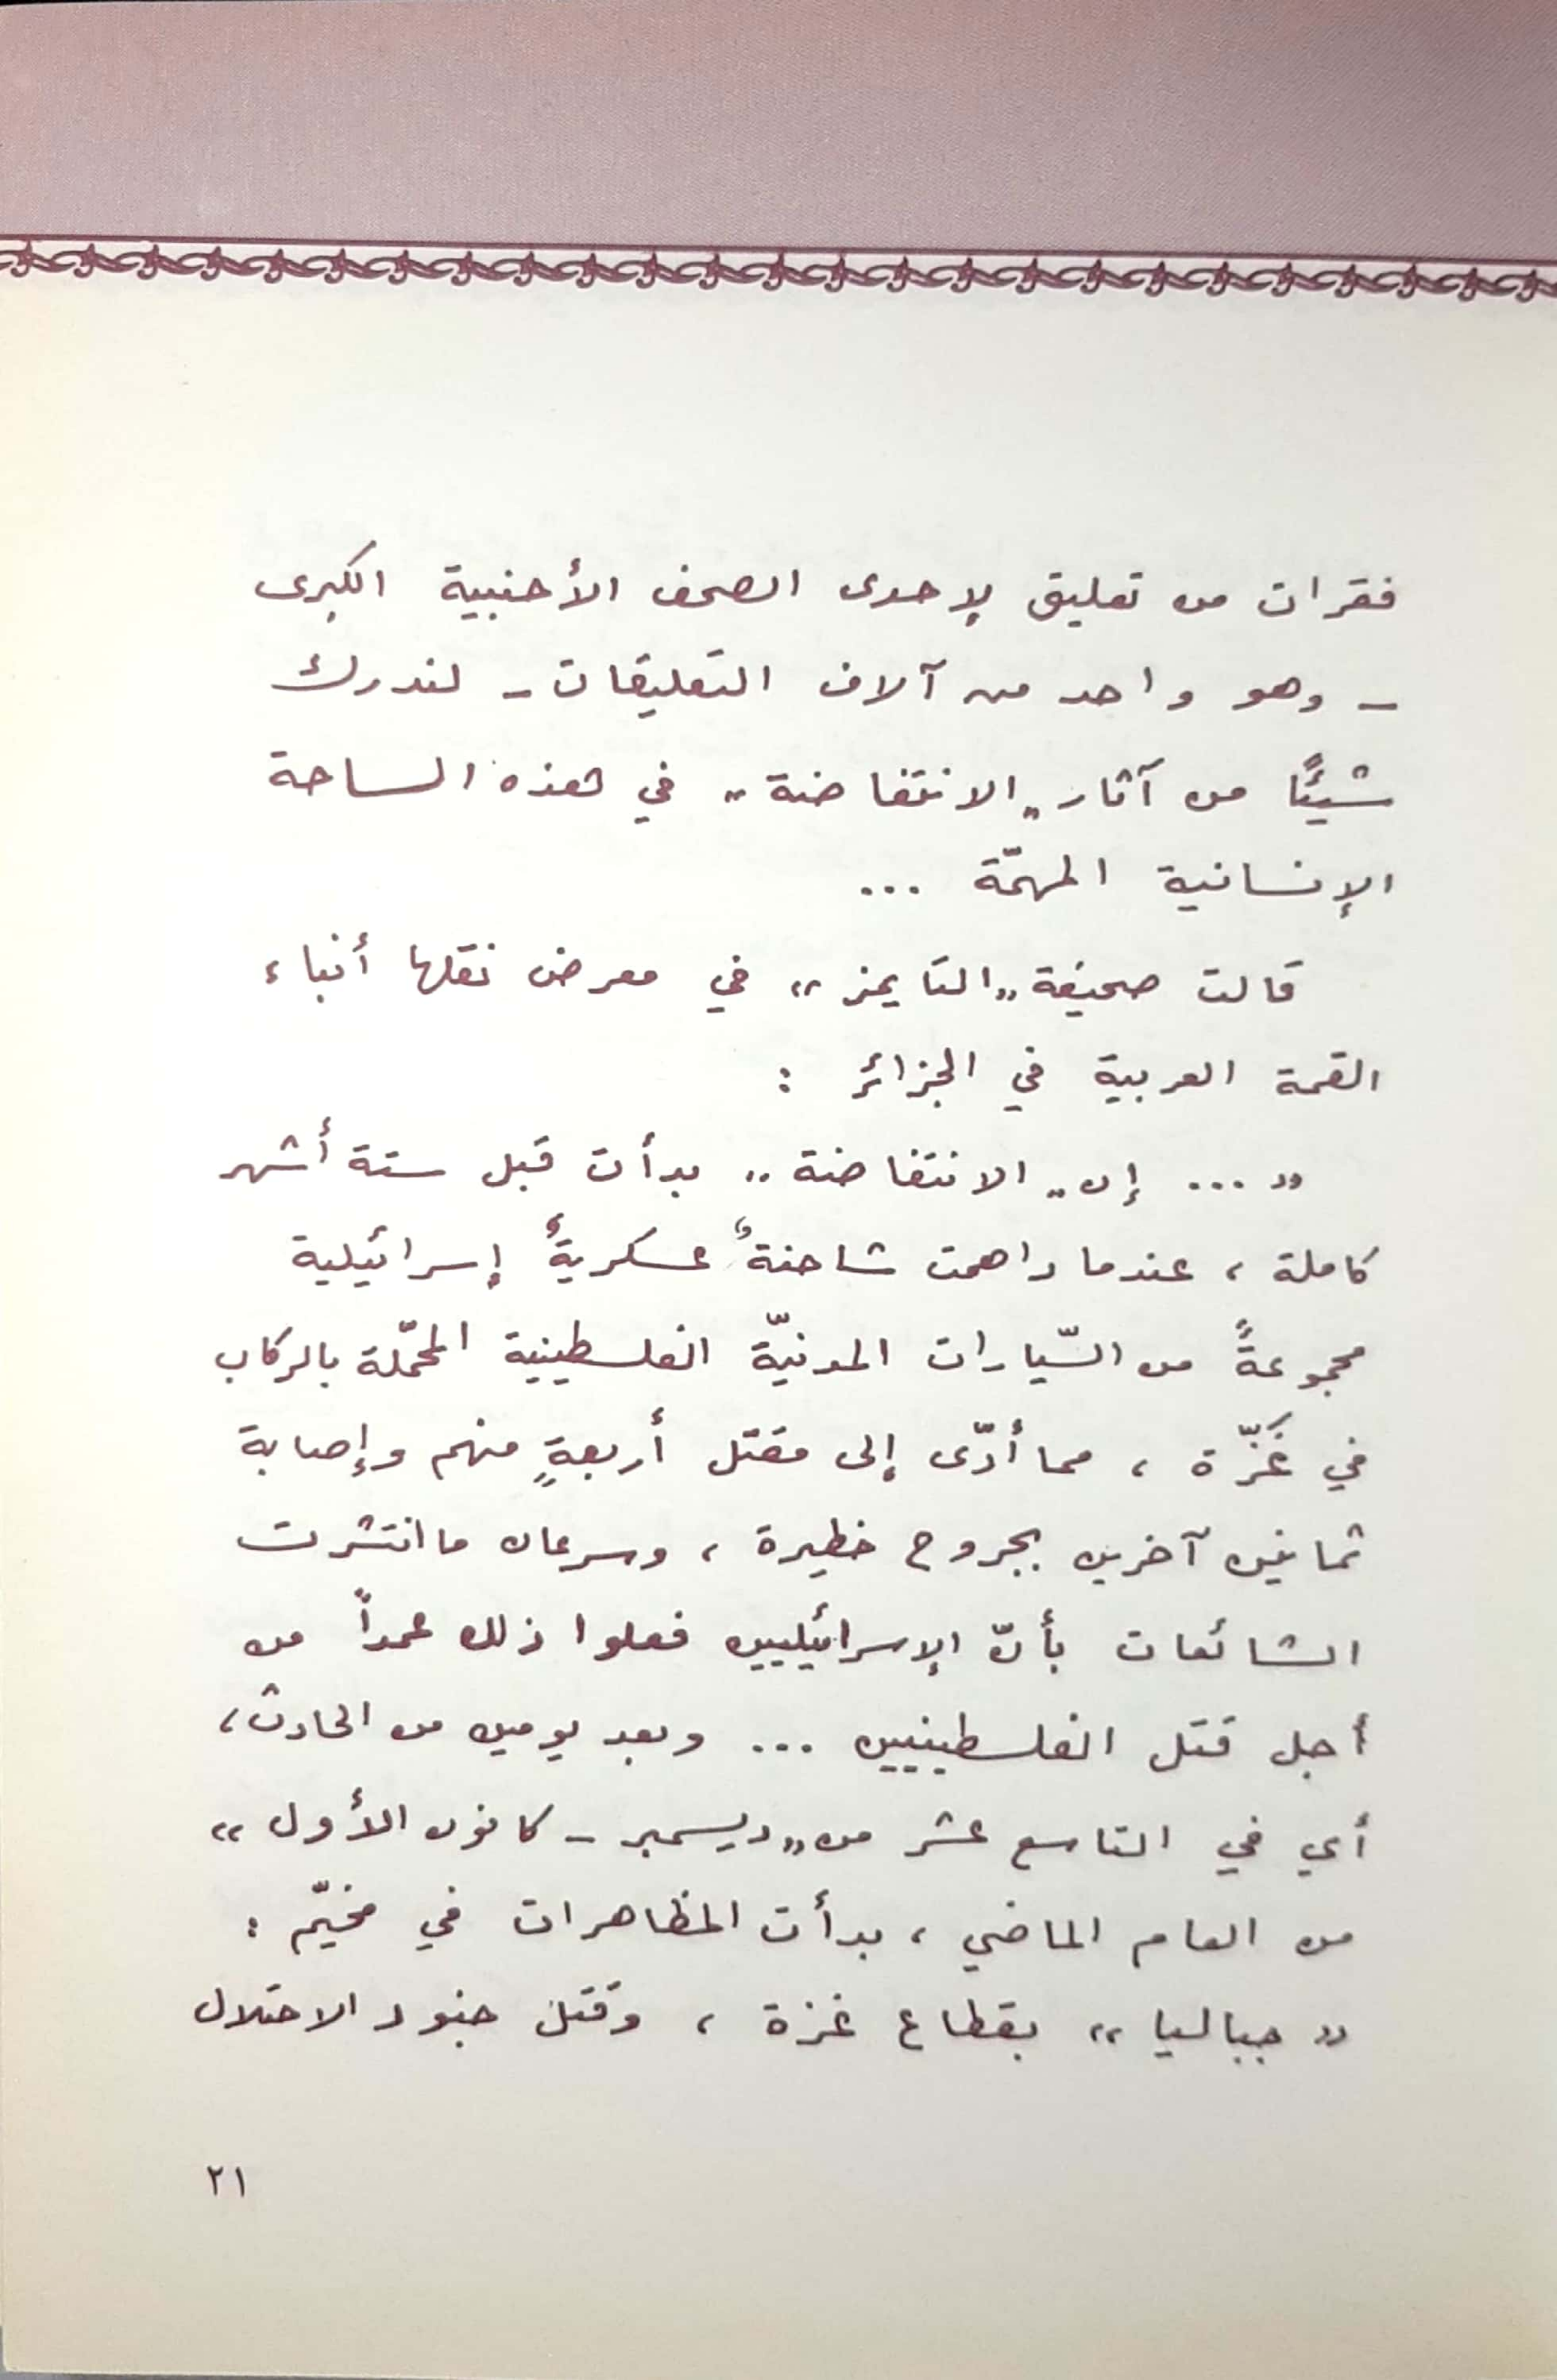 فقرات من تعليق لإحدى الصحف الأجنبية الكبرى
- وهو واحد من آلاف التعليقات - لندرك
شيئًا من آثار "الانتفاضة" في هذه الساحة
الإنسانية المهمّة ...
قالت صحيفة "التايمز" في معرض نقلها أنباء
القمة العربية في الجزائر :
" ... إن "الانتفاضة" بدأت قبل ستة أشهر
كاملة ، عندما داهمت شاحنةٌ عسكريةٌ إسرائيلية
مجموعةً من السّيارات المدنيّة الفلسطينية المحمّلة بالركاب
في غَزّة ، مما أدّى إلى مقتل أربعةٍ منهم وإصابة
ثمانين آخرين بجروح خطيرة ، وسرعان ما انتشرت
الشائعات بأنّ الإسرائيليين فعلوا ذلك عمداً من
أجل قتل الفلسطينيين ... وبعد يومين من الحادث ،
أي في التاسع عشر من "ديسمبر - كانون الأول"
من العام الماضي ، بدأت المظاهرات في مخيّم :
"جباليا" بقطاع غزة ، وقتل جنود الاحتلال
٢١